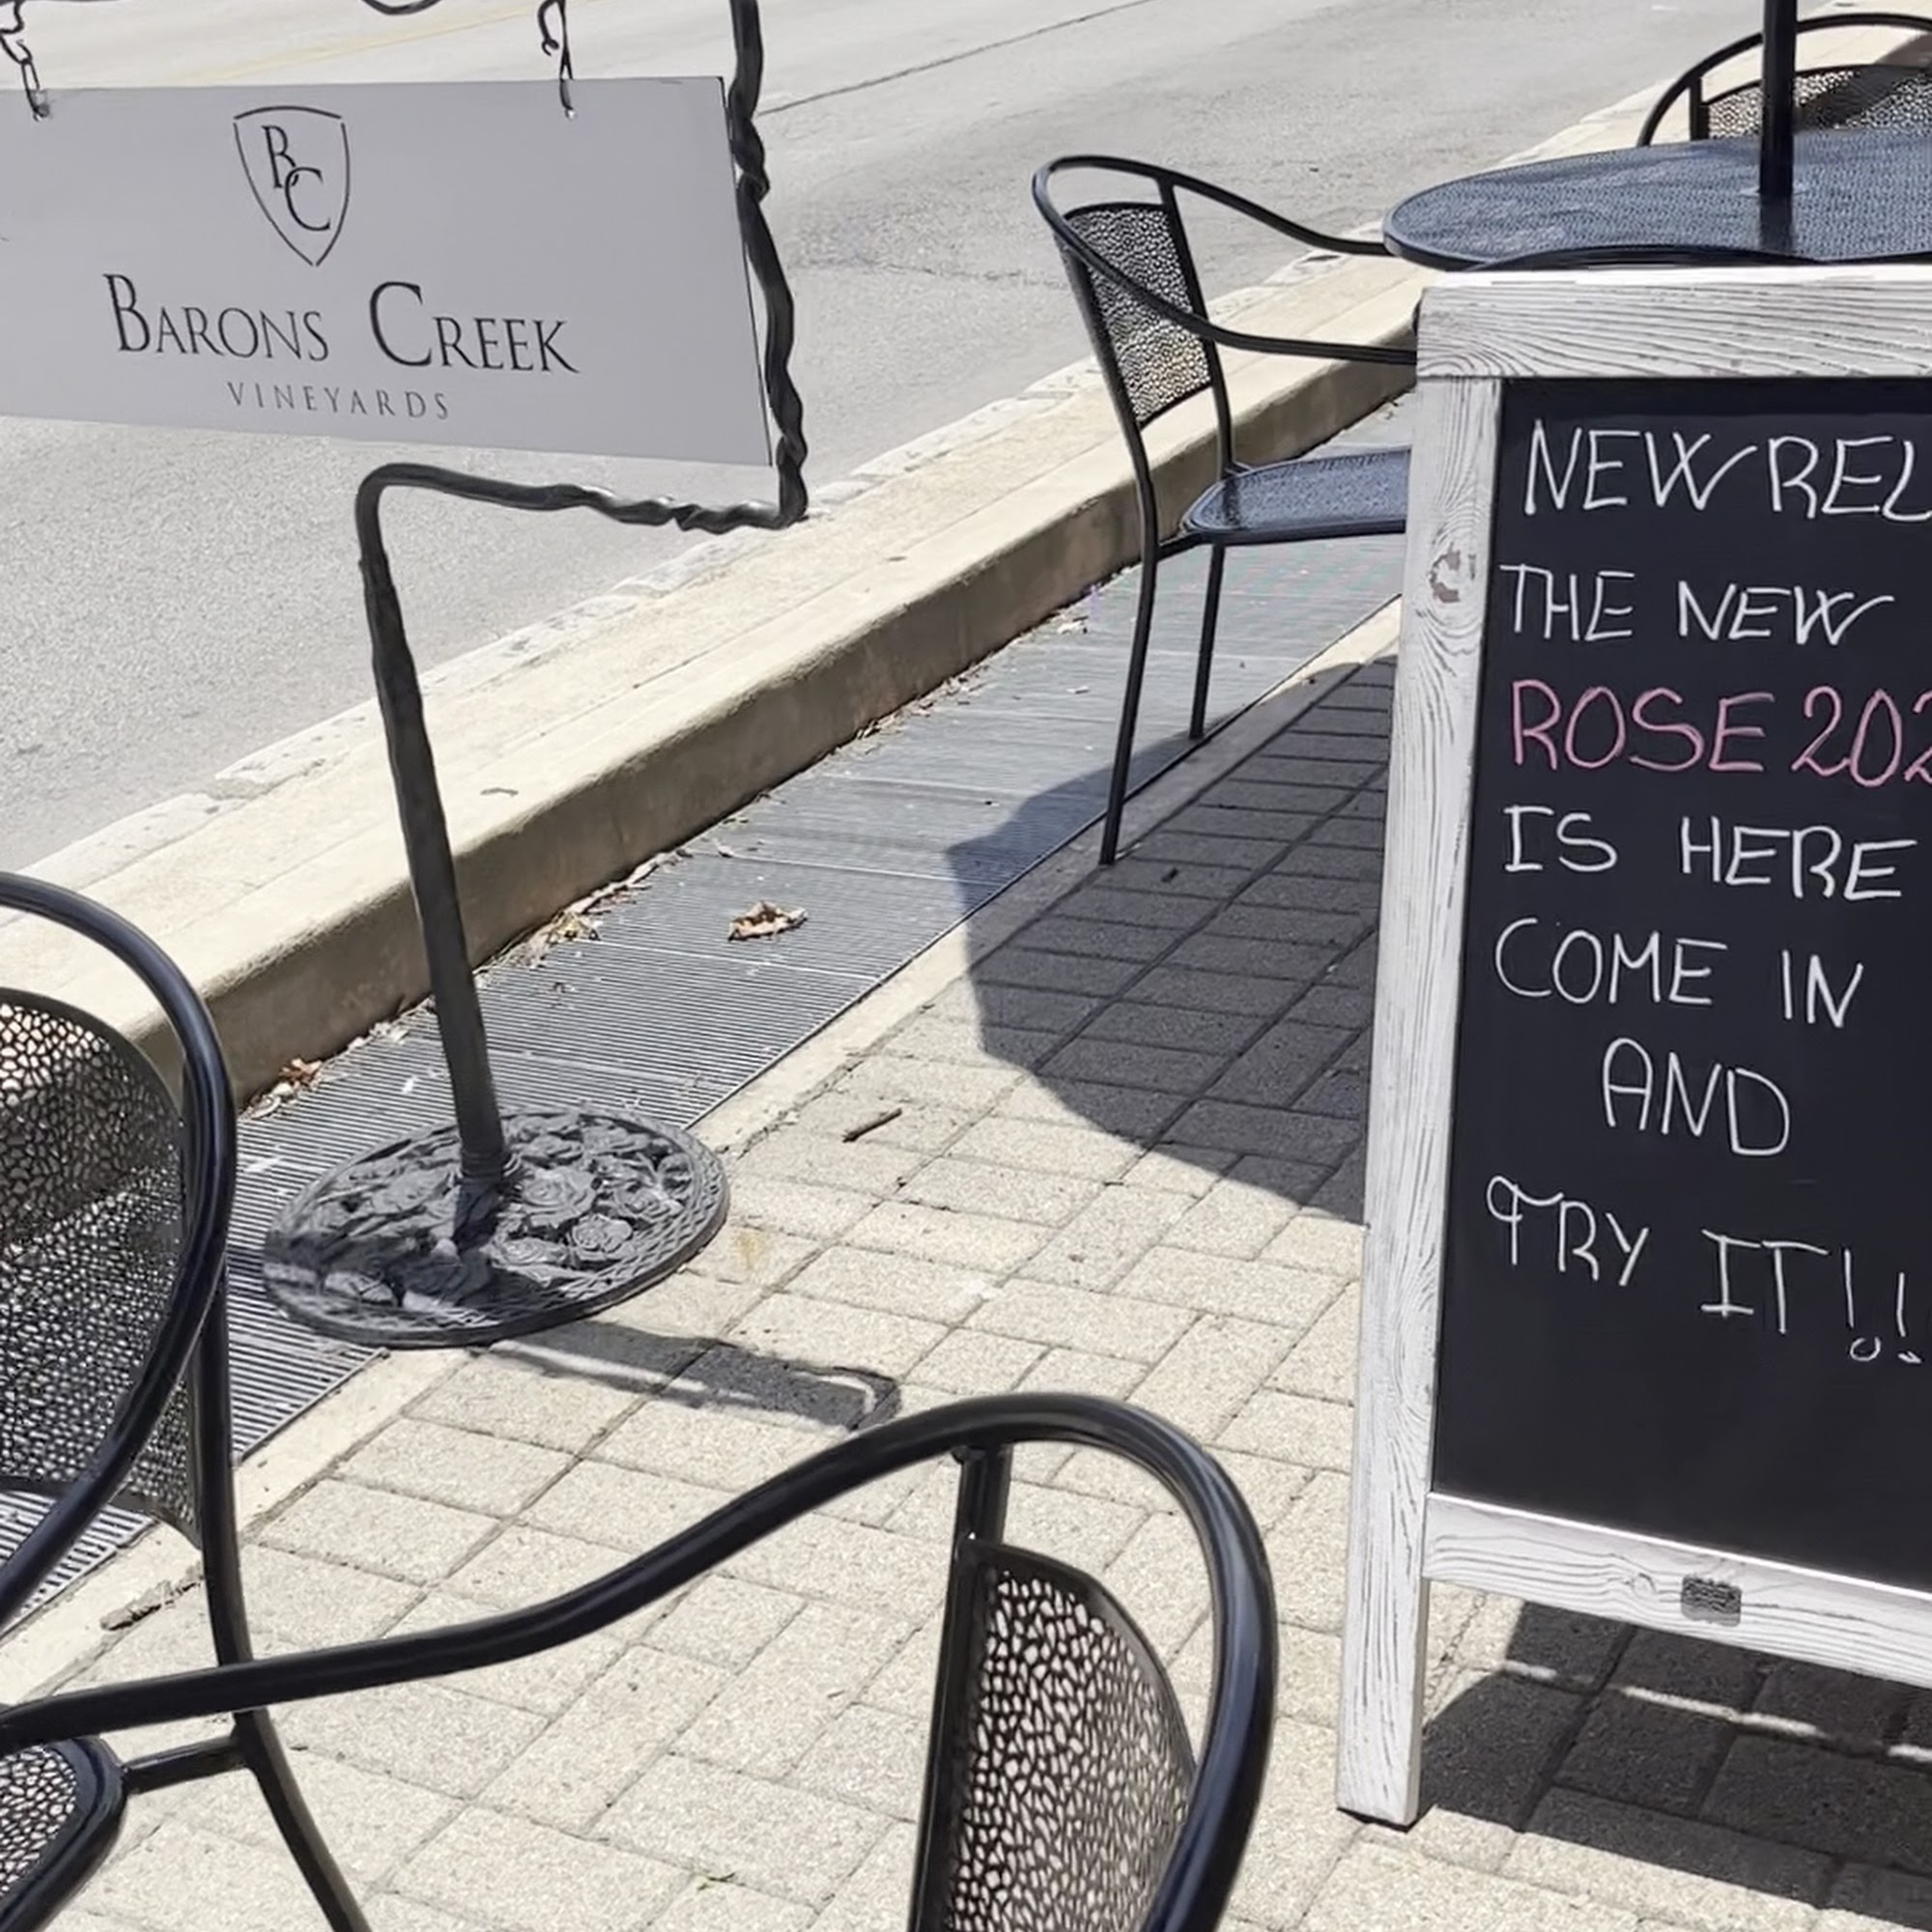 BC
BARONS CREEK
VINEYARDS
NEW REL
THE NEW
ROSE 202
IS HERE
COME IN
AND
TRY IT!!